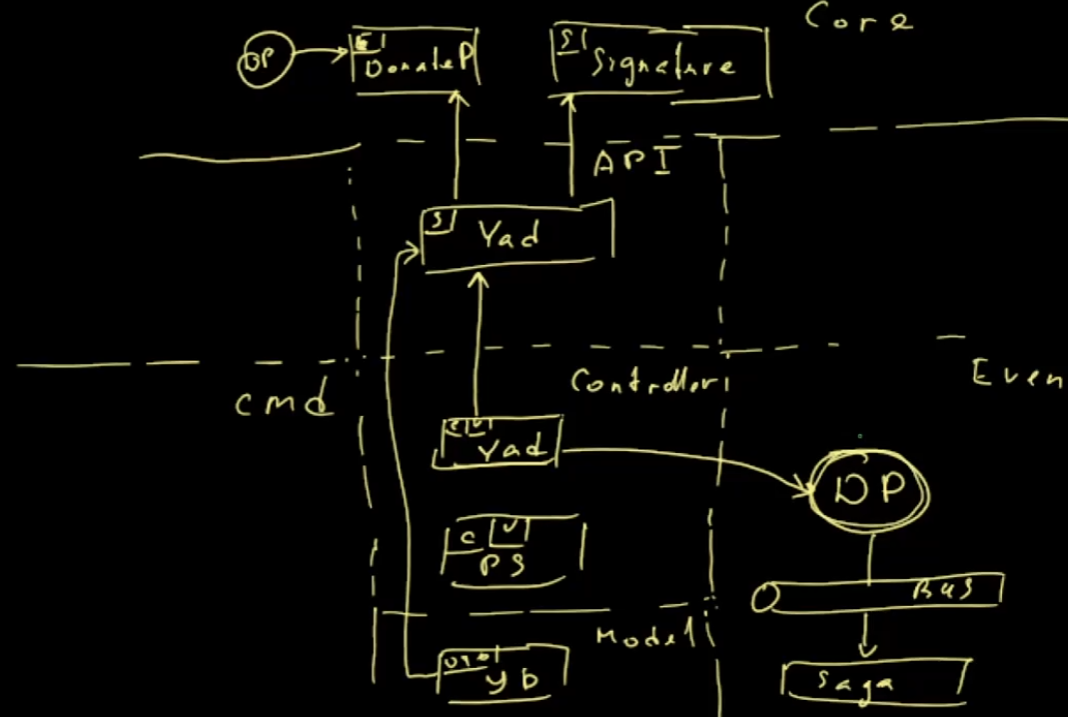 Core
DP
E
DonateP
S
Signature
API
S
Yad
cmd
Controller
Even
C V
Yad
DP
C V
PS
Bus
Model
DTO
YD
Saga